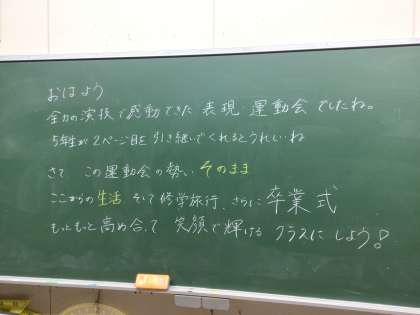 おはよう
全力の演技で感動できた 表現・運動会 でしたね。
5年生が 2ページ目を 引き継いでくれるとうれしいね
さて この運動会の勢い そのまま
ここからの生活 そして修学旅行、さらに 卒業式
もっともっと高め合って 笑顔で輝ける クラスに しよう!